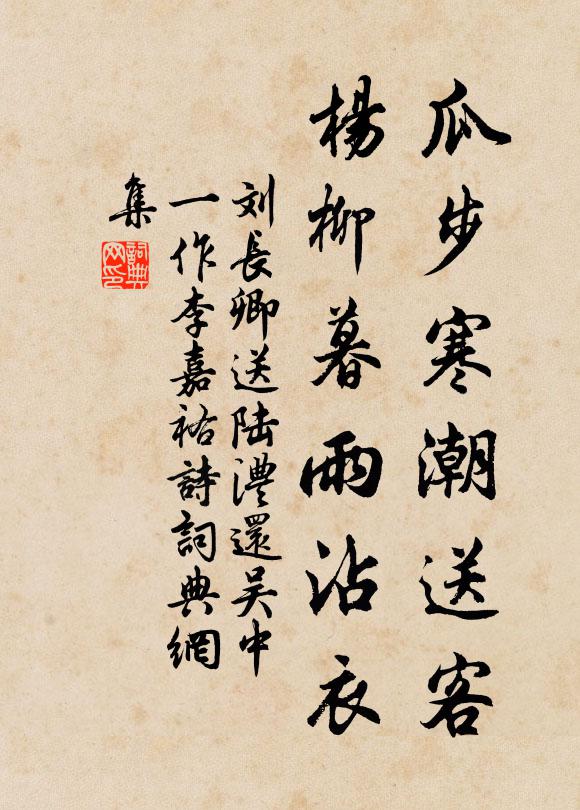 瓜步寒潮送客
楊柳暮雨沾衣
刘長卿送陆澧還吴中
一作李嘉祐詩詞典網
集
詞典網印